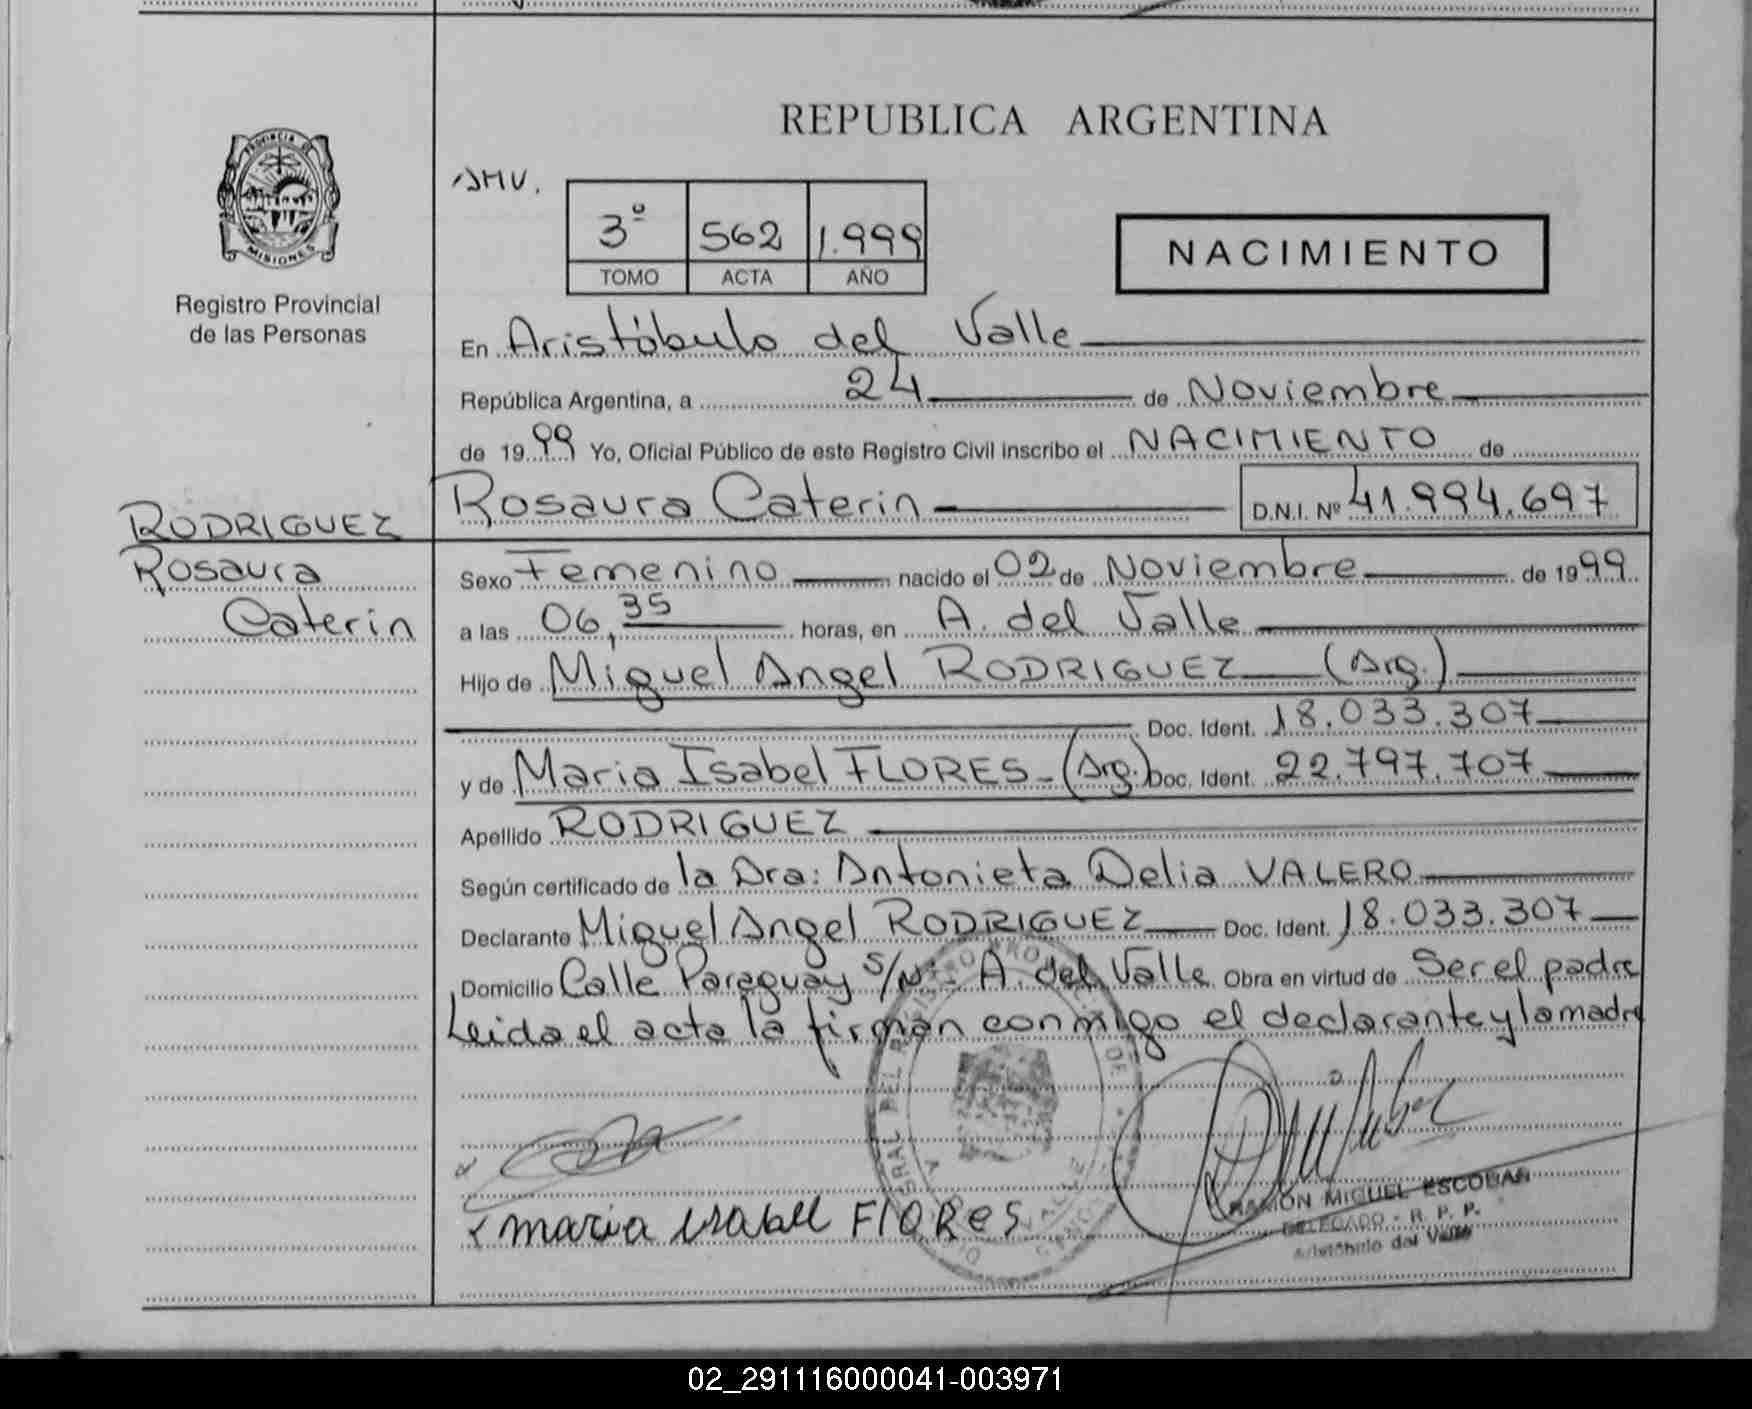 REPUBLICA ARGENTINA
PROVINCIA DE
MISIONES
Registro Provincial
de las Personas
AMV.
3º 562 1.999
TOMO ACTA AÑO
NACIMIENTO
En Aristóbulo del Valle
República Argentina, a 24 de Noviembre
de 1999 Yo, Oficial Público de este Registro Civil inscribo el NACIMIENTO de
Rosaura Caterin D.N.I. Nº 41.994.697
RODRIGUEZ
Rosaura
Caterin
Sexo Femenino nacido el 02 de Noviembre de 1999
a las 06,35 horas, en A. del Valle
Hijo de Miguel Angel RODRIGUEZ (Arg.)
Doc. Ident. 18.033.307
y de Maria Isabel FLORES - (Arg.) Doc. Ident. 22.797.707
Apellido RODRIGUEZ
Según certificado de la Dra: Antonieta Delia VALERO
Declarante Miguel Angel RODRIGUEZ Doc. Ident. 18.033.307
Domicilio Calle Paraguay S/Nº A. del Valle Obra en virtud de Ser el padre
Leida el acta la firman conmigo el declarante y la madre
maria isabel FlOReS
RAMÓN MIGUEL ESCOBAR
DELEGADO - R. P. P.
Aristóbulo del Valle
02_291116000041-003971